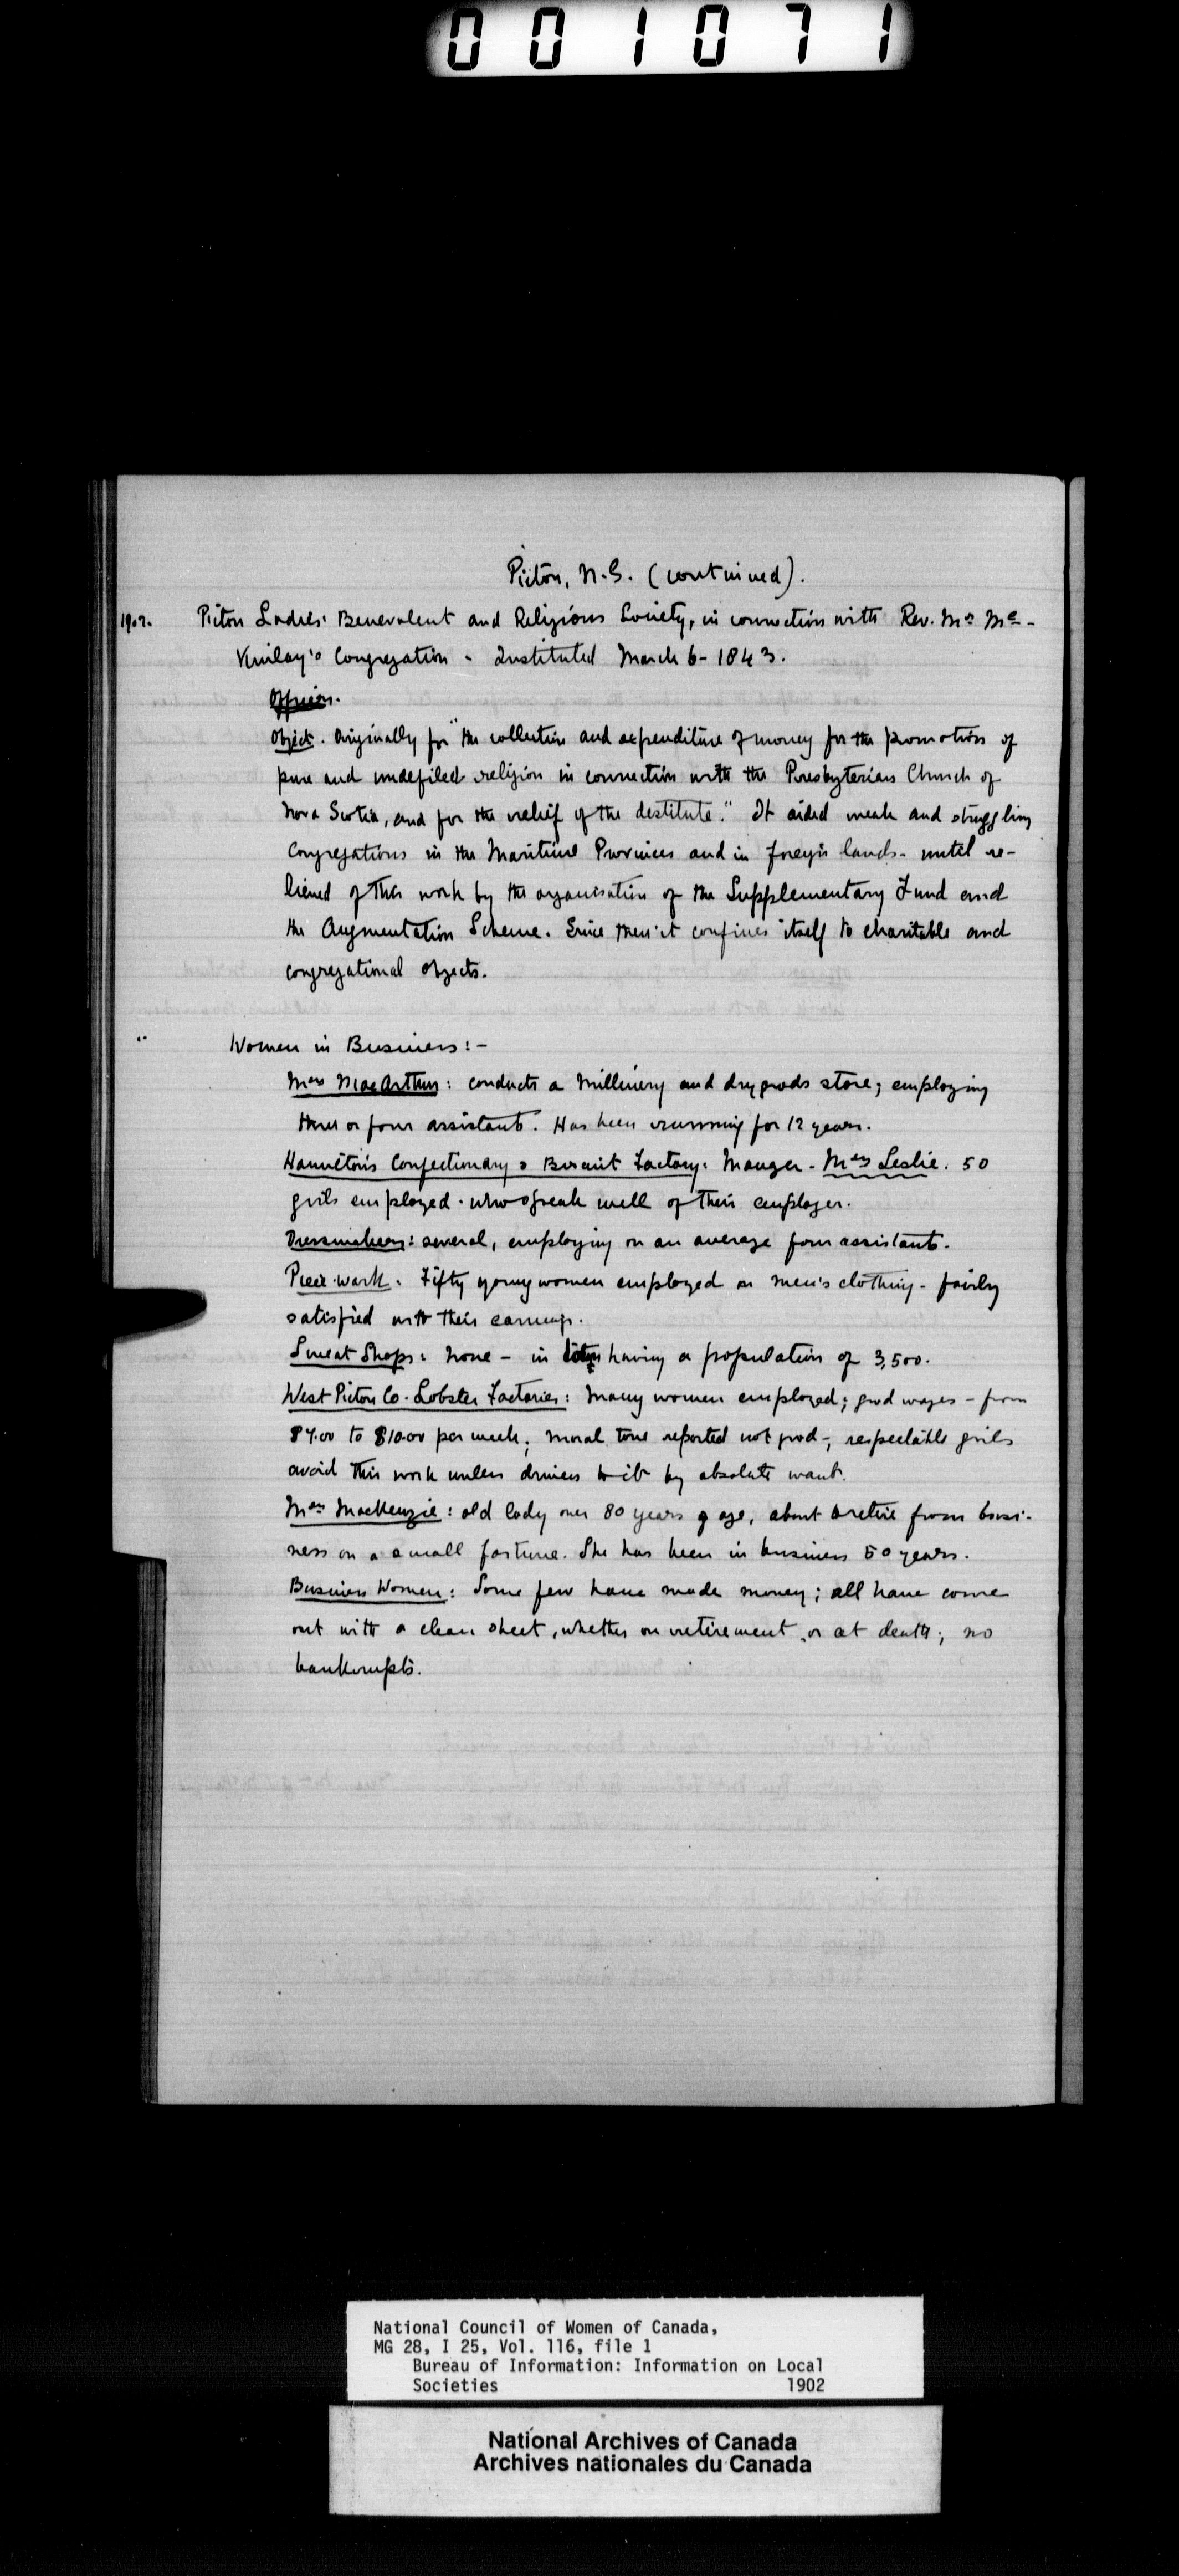 001071
Pictou, N.S. (continued).
1902. Pictou Ladies' Benevolent and Religious Society, in connection with Rev. Mr Mc-
Kinlay's Congregation - Instituted March 6 - 1843.
Officers.
Object. Originally for "the collection and expenditure of money for the promotion of
pure and undefiled religion in connection with the Presbyterian Church of
Nova Scotia, and for the relief of the destitute." It aided weak and struggling
Congregations in the Maritime Provinces and in foreign lands - until re-
lieved of this work by the organisation of the Supplementary Fund and
the Augmentation Scheme. Since then it confines itself to charitable and
congregational objects.
" Women in Business:-
Mrs MacArthur: conducts a millinery and drygoods store; employing
three or four assistants. Has been running for 12 years.
Hamilton's Confectionary & Biscuit Factory. Manger - Mrs Leslie. 50
girls employed - who speak well of their employer.
Dressmakers: several, employing on an average four assistants.
Piece-work. Fifty young women employed on men's clothing - fairly
satisfied with their earnings.
Sweat Shops: None - in having a population of 3,500.
West Pictou Co. Lobster Factories: Many women employed; good wages - from
to $10.00 per week; moral tone reported not good -; respectable girls
avoid this work unless driven to it by absolute want.
Mrs MacKenzie: old lady over 80 years of age, about to retire from busi-
ness on a small fortune. She has been in business 50 years.
Business Women: Some few have made money; all have come
out with a clean sheet, whether on retirement, or at death; no
bankrupts.
National Council of Women of Canada,
MG 28, I 25, Vol. 116, file 1
Bureau of Information: Information on Local
Societies 1902
National Archives of Canada
Archives nationales du Canada